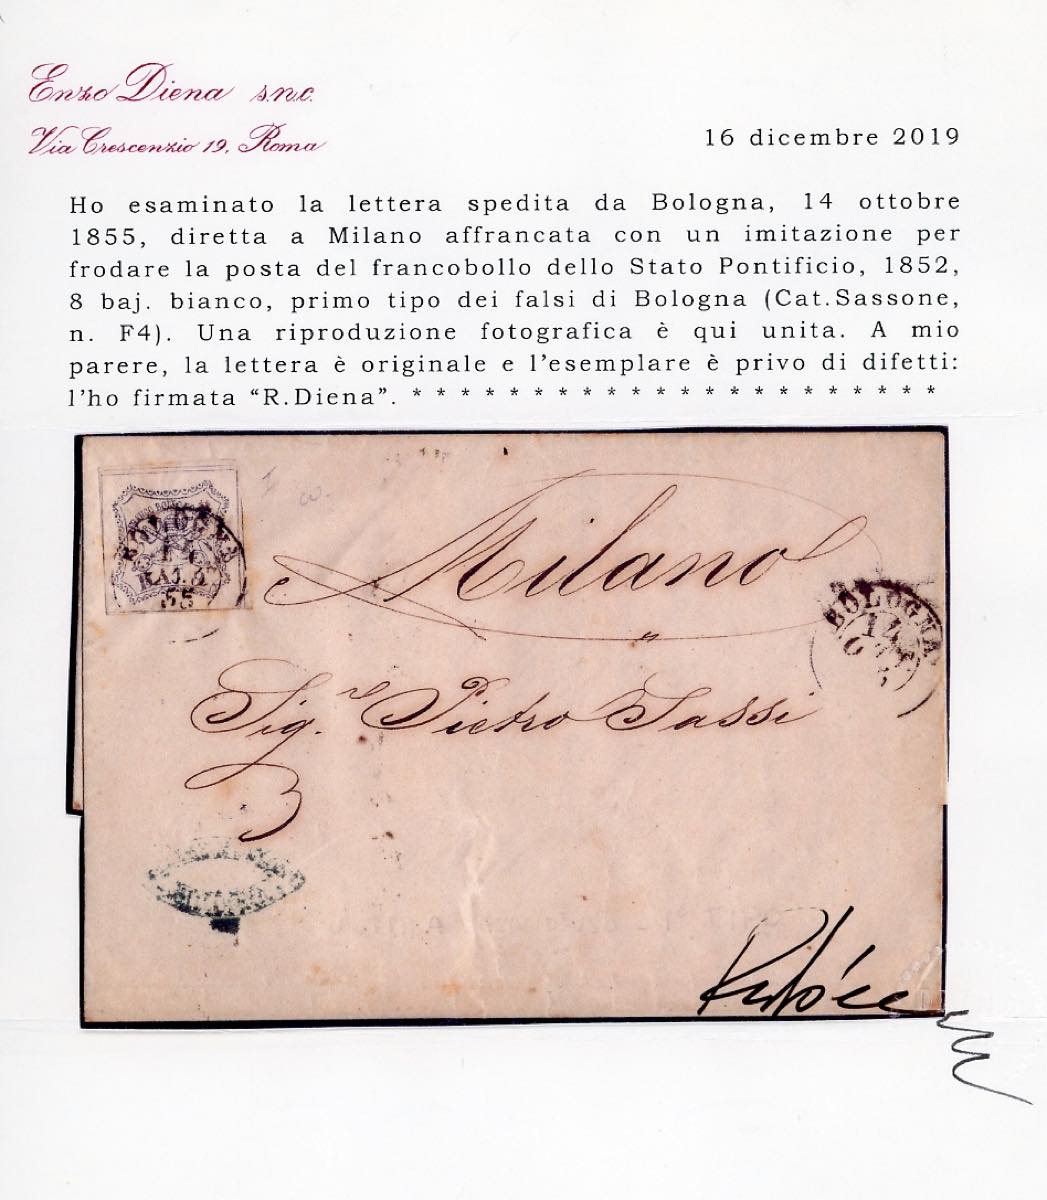 Enzo Diena s.n.c.
Via Crescenzio 19, Roma
16 dicembre 2019
Ho esaminato la lettera spedita da Bologna, 14 ottobre
1855, diretta a Milano affrancata con un imitazione per
frodare la posta del francobollo dello Stato Pontificio, 1852,
8 baj. bianco, primo tipo dei falsi di Bologna (Cat.Sassone,
n. F4). Una riproduzione fotografica è qui unita. A mio
parere, la lettera è originale e l'esemplare è privo di difetti:
l'ho firmata “R.Diena”. * * * * * * * * * * * * * * * * * * * * * *
Milano
BOLOGNA
55
BOLOGNA
14
Sig.r Pietro Sassi